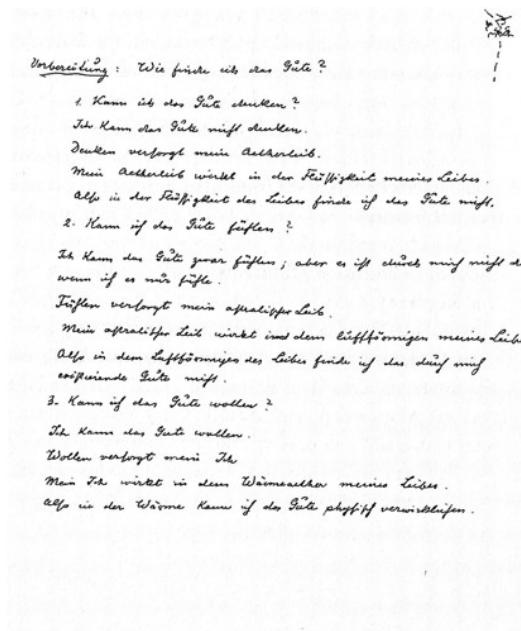 Vorbereitung Wie finde ich das Gute?
1. Kann ich das Gute denken?
Ich kann das Gute nicht denken.
Denken versorgt mein Aetherleib.
Mein Aetherleib wirkt in der Flüssigkeit meines Leibes.
Also in der Flüssigkeit des Leibes finde ich das Gute nicht.
2. Kann ich das Gute fühlen?
Ich kann das Gute zwar fühlen; aber es ist durch mich nicht d
wenn ich es nur fühle.
Fühlen versorgt mein astralischer Leib.
Mein astralischer Leib wirkt in dem luftförmigen meines Leibe
Also in dem Luftförmigen des Leibes finde ich das durch mich
existierende Gute nicht.
3. Kann ich das Gute wollen?
Ich kann das Gute wollen.
Wollen versorgt mein Ich
Mein Ich wirkt in dem Wärmeaether meines Leibes.
Also in der Wärme kann ich das Gute physisch verwirklichen.